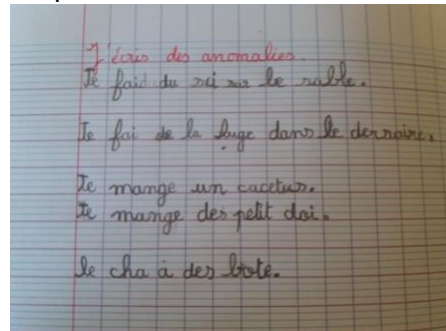 J'écris des anomalies.
Je fait du sci sur le sable.
Je fai de la luge dans le
Je mange un cacetus.
Je mange des petit doi.
le cha à des bote.